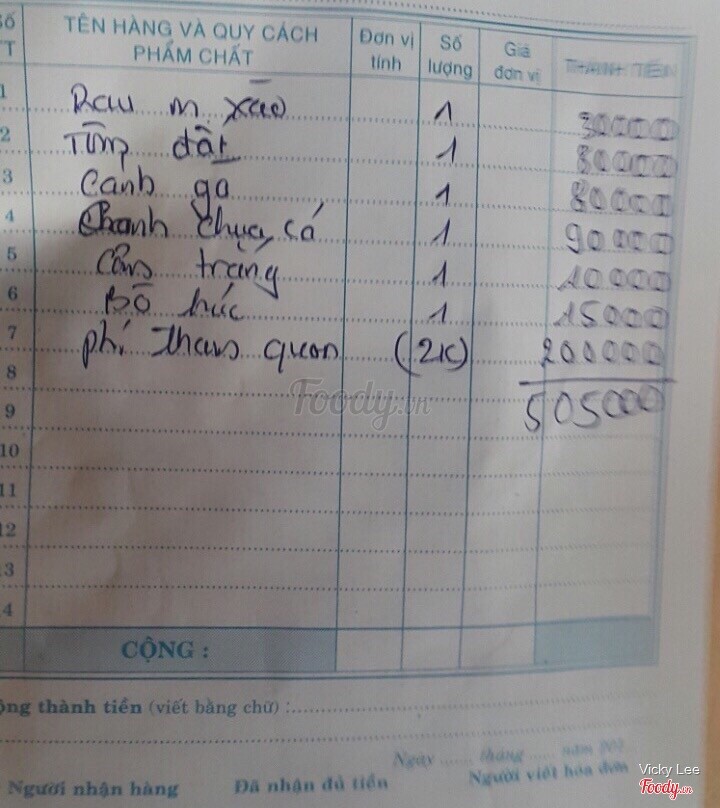 Số TÊN HÀNG VÀ QUY CÁCH PHẨM CHẤT Đơn vị tính Số lượng Giá đơn vị THÀNH TIỀN
TT
1 Rau m. xào 1 30000
2 Tôm đất 1 80000
3 Canh ga 1 80000
4 Chanh chua cá 1 90000
5 Cơm trắng 1 10000
6 Bò húc 1 15000
7 phí tham quan (2K) 200000
8 505000
9
10
11
12
13
14
CỘNG :
Cộng thành tiền (viết bằng chữ) :
Ngày ...... tháng ...... năm 200
Người nhận hàng Đã nhận đủ tiền Người viết hóa đơn
Foody.vn
Vicky Lee
Foody.vn